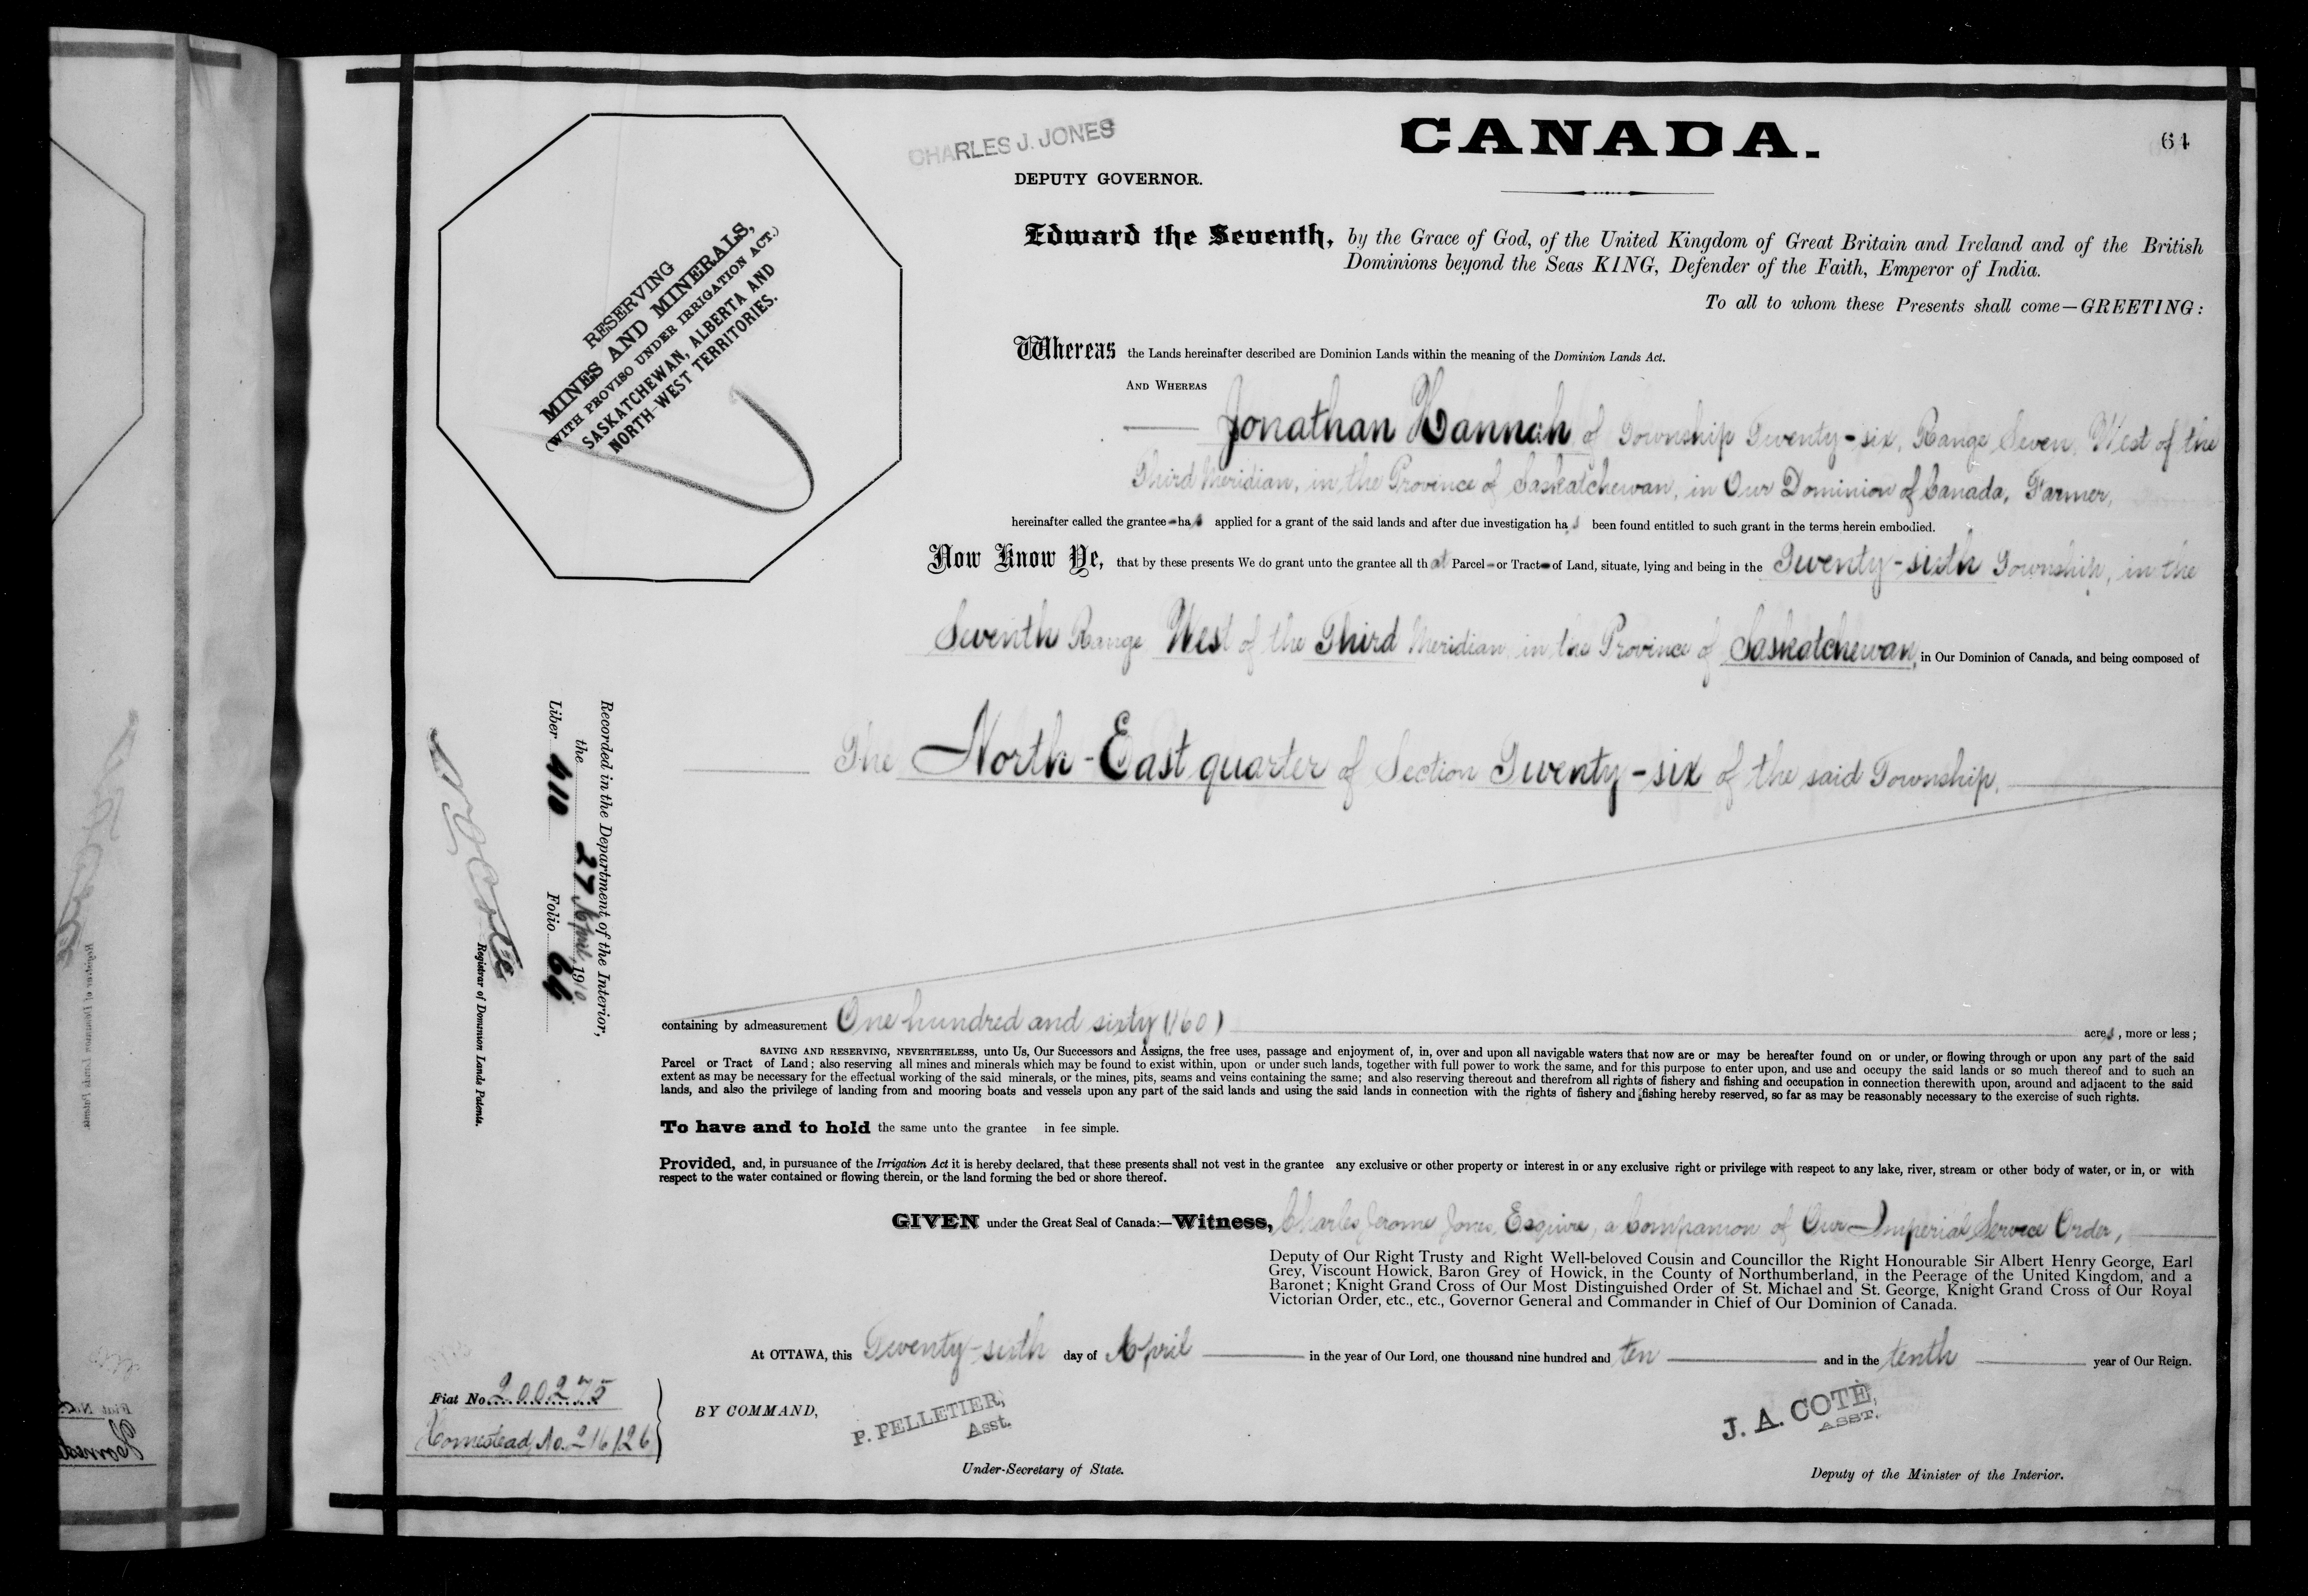 CHARLES J. JONES
DEPUTY GOVERNOR.
CANADA.
64
RESERVING
MINES AND MINERALS,
(WITH PROVISO UNDER IRRIGATION ACT.)
SASKATCHEWAN, ALBERTA AND
NORTH-WEST TERRITORIES.
Edward the Seventh, by the Grace of God, of the United Kingdom of Great Britain and Ireland and of the British
Dominions beyond the Seas KING, Defender of the Faith, Emperor of India.
To all to whom these Presents shall come—GREETING:
Whereas the Lands hereinafter described are Dominion Lands within the meaning of the Dominion Lands Act.
AND WHEREAS
Jonathan Hannah of Township Twenty-six, Range Seven, West of the
Third Meridian, in the Province of Saskatchewan, in Our Dominion of Canada, Farmer,
hereinafter called the grantee has applied for a grant of the said lands and after due investigation has been found entitled to such grant in the terms herein embodied.
Now Know Ye, that by these presents We do grant unto the grantee all that Parcel or Tract of Land, situate, lying and being in the Twenty-sixth Township, in the
Seventh Range West of the Third Meridian in the Province of Saskatchewan, in Our Dominion of Canada, and being composed of
The North-East quarter of Section Twenty-six of the said Township.
Recorded in the Department of the Interior,
the 27 April, 1910
Liber 410 Folio 64
N O Coté
Registrar of Dominion Lands Patents.
containing by admeasurement One hundred and sixty (160) acres, more or less;
SAVING AND RESERVING, NEVERTHELESS, unto Us, Our Successors and Assigns, the free uses, passage and enjoyment of, in, over and upon all navigable waters that now are or may be hereafter found on or under, or flowing through or upon any part of the said
Parcel or Tract of Land; also reserving all mines and minerals which may be found to exist within, upon or under such lands, together with full power to work the same, and for this purpose to enter upon, and use and occupy the said lands or so much thereof and to such an
extent as may be necessary for the effectual working of the said minerals, or the mines, pits, seams and veins containing the same; and also reserving thereout and therefrom all rights of fishery and fishing and occupation in connection therewith upon, around and adjacent to the said
lands, and also the privilege of landing from and mooring boats and vessels upon any part of the said lands and using the said lands in connection with the rights of fishery and fishing hereby reserved, so far as may be reasonably necessary to the exercise of such rights.
To have and to hold the same unto the grantee in fee simple.
Provided, and, in pursuance of the Irrigation Act it is hereby declared, that these presents shall not vest in the grantee any exclusive or other property or interest in or any exclusive right or privilege with respect to any lake, river, stream or other body of water, or in, or with
respect to the water contained or flowing therein, or the land forming the bed or shore thereof.
GIVEN under the Great Seal of Canada:—Witness, Charles Jerome Jones, Esquire, a Companion of Our Imperial Service Order,
Deputy of Our Right Trusty and Right Well-beloved Cousin and Councillor the Right Honourable Sir Albert Henry George, Earl
Grey, Viscount Howick, Baron Grey of Howick, in the County of Northumberland, in the Peerage of the United Kingdom, and a
Baronet; Knight Grand Cross of Our Most Distinguished Order of St. Michael and St. George, Knight Grand Cross of Our Royal
Victorian Order, etc., etc., Governor General and Commander in Chief of Our Dominion of Canada.
At OTTAWA, this Twenty-sixth day of April in the year of Our Lord, one thousand nine hundred and ten and in the tenth year of Our Reign.
Fiat No. 200275
Homestead No. 216126
BY COMMAND,
P. PELLETIER,
Asst.
Under-Secretary of State.
J. A. COTÉ,
ASST.
Deputy of the Minister of the Interior.